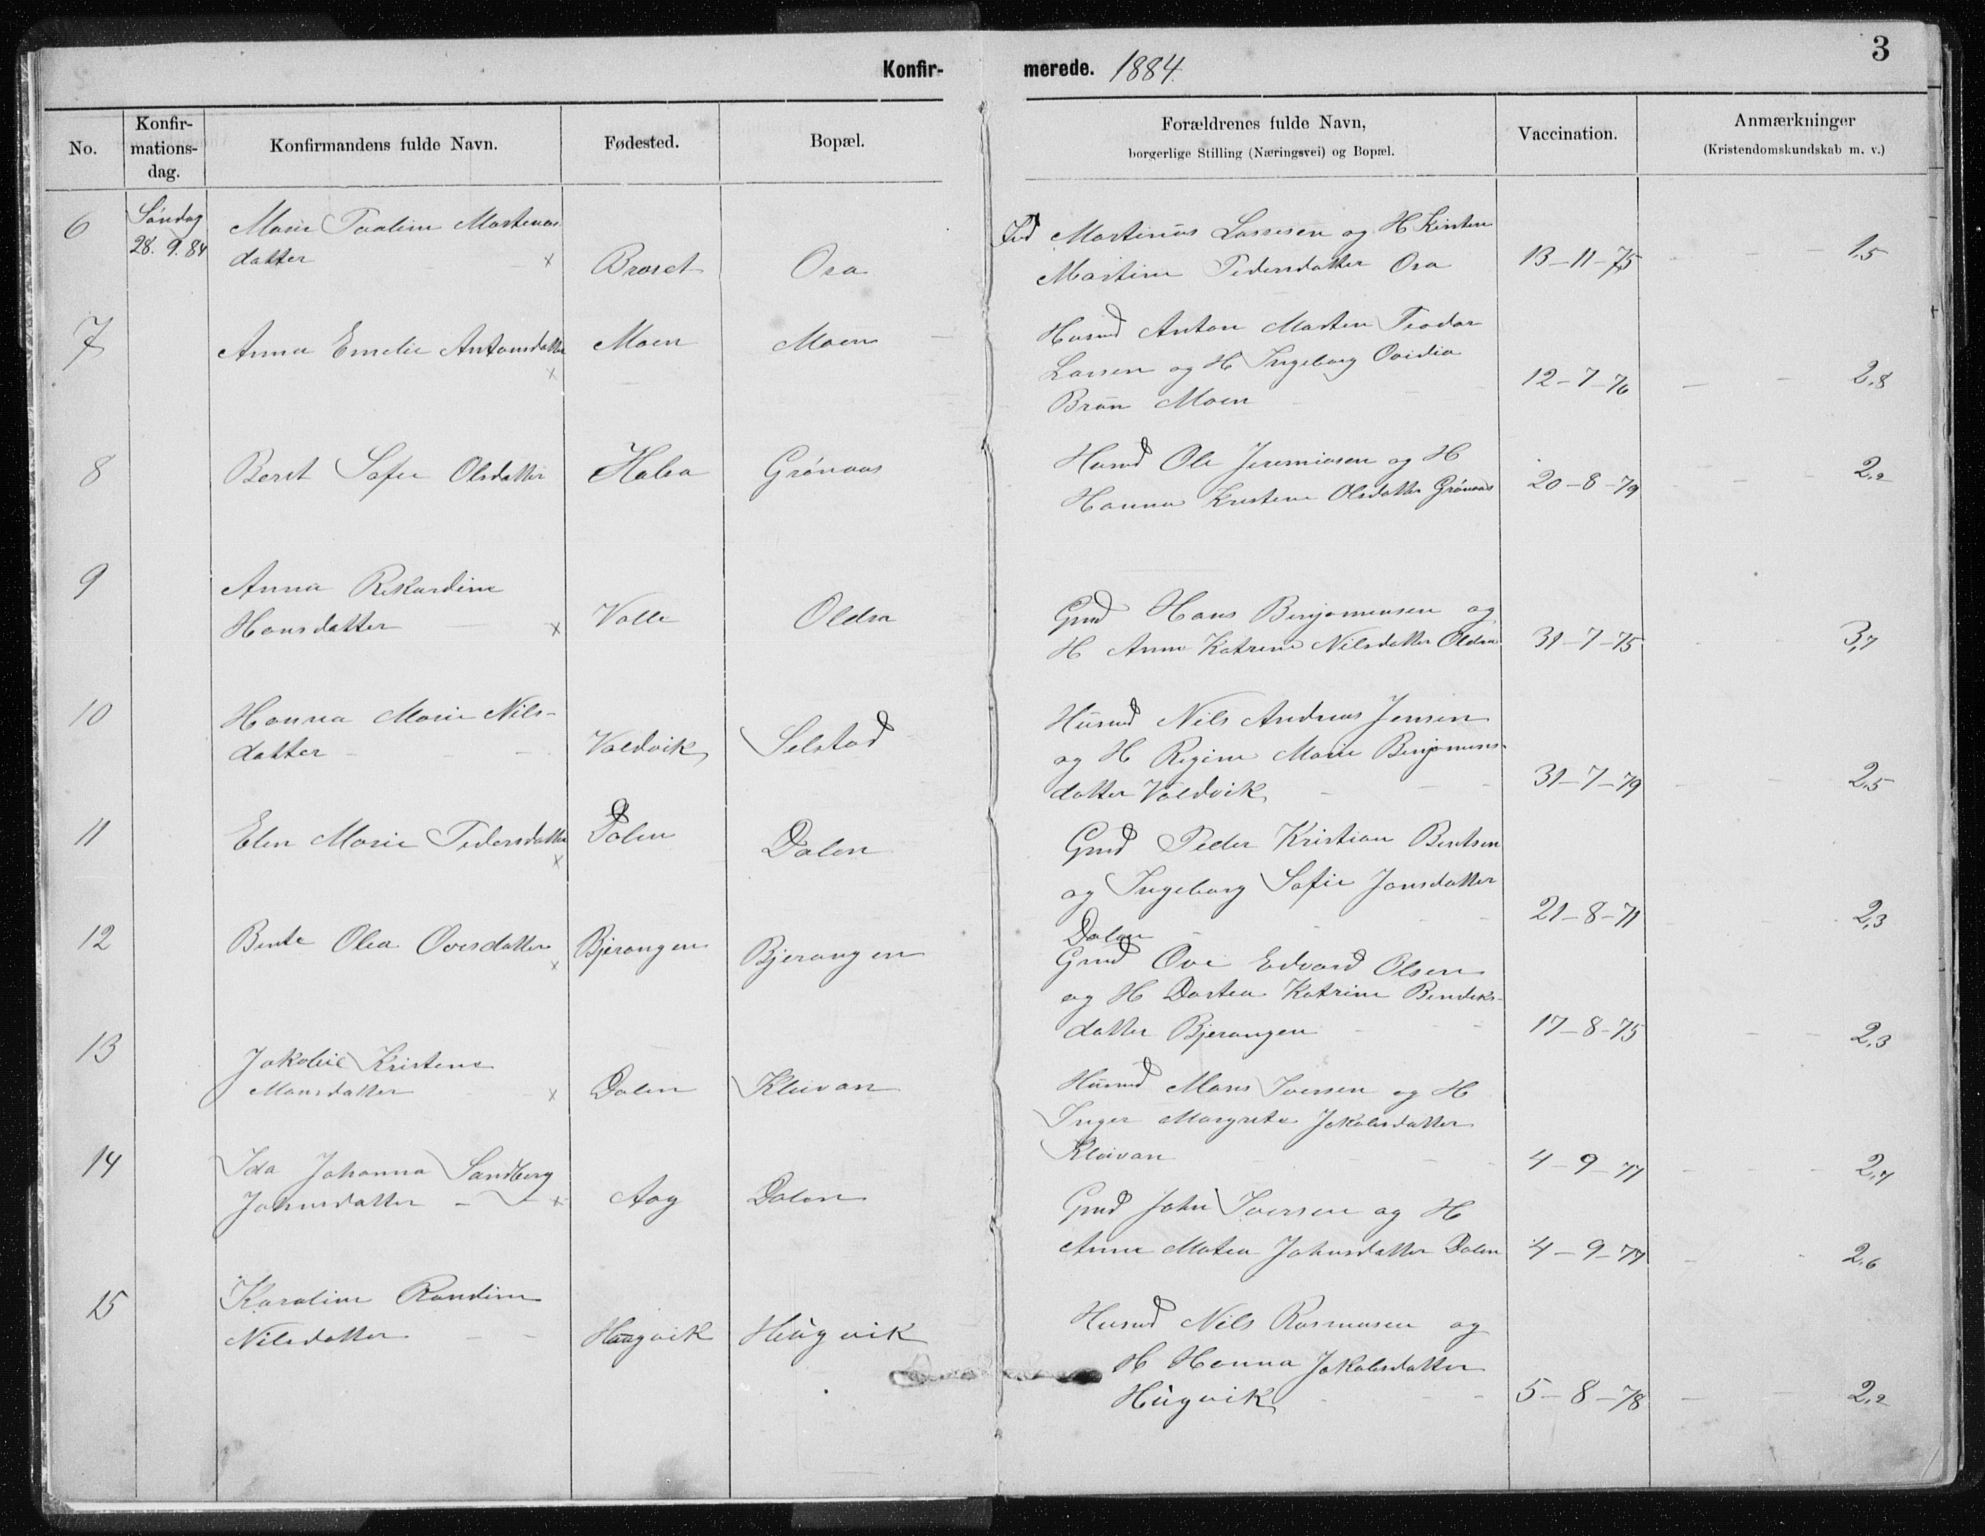 3
Konfir- merede. 1884.
No.
Konfir-
mations-
dag.
Konfirmandens fulde Navn.
Fødested.
Bopæl.
Forældrenes fulde Navn,
borgerlige Stilling (Næringsvei) og Bopæl.
Vaccination.
Anmærkninger
(Kristendomskundskab m. v.)
6 Søndag Marie Paaline Martenas
28. 9. 84 datter x Braset Osa
Martinus Larsen og H Kirsten
Martine Pedersdatter Osa 13-11-75 1,5
7 Anna Emelie Antonsdatter x Moen Moen
Husmd Anton Marten Teodor
Larsen og H Ingeborg Ovidia
Brün Moen 12-7-76 2,8
8 Beret Sofie Olsdatter Halsa Grönaas
Husmd Ole Jeremiasen og H
Hanna Kristene Olsdatter Grönaas 20-8-79 2,2
9 Anna Rikardine
Hansdatter x Valle Oldra
Gmd Hans Benjamensen og
H Anne Katrine Nilsdatter Oldra 31-7-75 3,7
10 Hanna Marie Nils-
datter Valdvik Selstad
Husmd Nils Andreas Jensen
og H Regine Marie Benjamens-
datter Valdvik 31-7-79 2,5
11 Elen Marie Pedersdatter x Dalen Dalen
Gmd Peder Kristian Bentsen
og Ingeborg Sofie Jonsdatter
Dalen 21-8-71 2,3
12 Bente Olea Ovesdatter x Bjerangen Bjerangen
Gmd Ove Edvard Olsen
og H Dortea Katrine Bendiks-
datter Bjerangen 17-8-75 2,3
13 Jakobie Kristene
Mansdatter x Dalen Kleivan
Husmd Mons Iversen og H
Inger Margrete Jakobsdatter
Kleivan 4-9-77 2,7
14 Ida Johanna Sandberg
Johnsdatter x Aag Dalen
Gmd John Iversen og H
Anne Matea Johnsdatter Dalen 4-9-77 2,6
15 Karoline Randine
Nilsdatter Haugvik Hügvik
Husmd Nils Rasmusen og
H Hanna Jakobsdatter
Hügvik 5-8-78 2,2